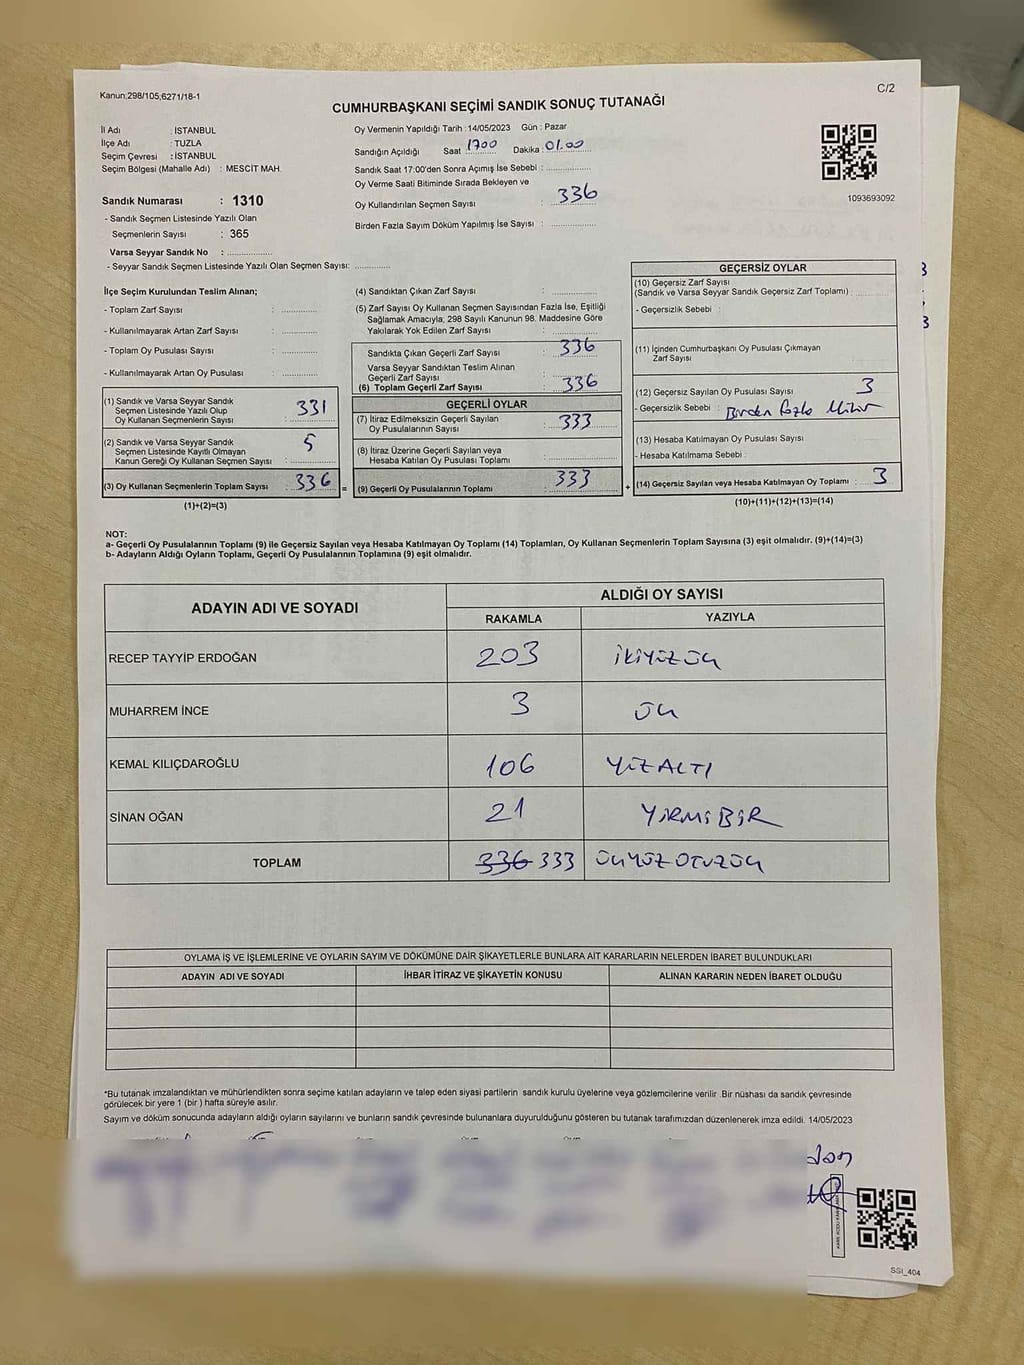 Kanun;298/105,6271/18-1
C/2
CUMHURBAŞKANI SEÇİMİ SANDIK SONUÇ TUTANAĞI
İl Adı : İSTANBUL
İlçe Adı : TUZLA
Seçim Çevresi : İSTANBUL
Seçim Bölgesi (Mahalle Adı) : MESCİT MAH.
Sandık Numarası : 1310
- Sandık Seçmen Listesinde Yazılı Olan
Seçmenlerin Sayısı : 365
Varsa Seyyar Sandık No : ................
- Seyyar Sandık Seçmen Listesinde Yazılı Olan Seçmen Sayısı: ............
Oy Vermenin Yapıldığı Tarih :14/05/2023 Gün : Pazar
Sandığın Açıldığı Saat 1700 Dakika : 01.00
Sandık Saat 17:00'den Sonra Açımış İse Sebebi : ...............
Oy Verme Saati Bitiminde Sırada Bekleyen ve
Oy Kullandırılan Seçmen Sayısı : 336
Birden Fazla Sayım Döküm Yapılmış İse Sayısı : ...............
1093693092
İlçe Seçim Kurulundan Teslim Alınan;
- Toplam Zarf Sayısı : ............
- Kullanılmayarak Artan Zarf Sayısı : ............
- Toplam Oy Pusulası Sayısı : ............
- Kullanılmayarak Artan Oy Pusulası : ............
(1) Sandık ve Varsa Seyyar Sandık
Seçmen Listesinde Yazılı Olup
Oy Kullanan Seçmenlerin Sayısı : 331
(2) Sandık ve Varsa Seyyar Sandık
Seçmen Listesinde Kayıtlı Olmayan
Kanun Gereği Oy Kullanan Seçmen Sayısı : 5
(3) Oy Kullanan Seçmenlerin Toplam Sayısı : 336 =
(1)+(2)=(3)
(4) Sandıktan Çıkan Zarf Sayısı : ...............
(5) Zarf Sayısı Oy Kullanan Seçmen Sayısından Fazla İse, Eşitliği
Sağlamak Amacıyla, 298 Sayılı Kanunun 98. Maddesine Göre
Yakılarak Yok Edilen Zarf Sayısı : ...............
Sandıkta Çıkan Geçerli Zarf Sayısı : 336
Varsa Seyyar Sandıktan Teslim Alınan
Geçerli Zarf Sayısı : ...............
(6) Toplam Geçerli Zarf Sayısı : 336
GEÇERLİ OYLAR
(7) İtiraz Edilmeksizin Geçerli Sayılan
Oy Pusulalarının Sayısı : 333
(8) İtiraz Üzerine Geçerli Sayılan veya
Hesaba Katılan Oy Pusulası Toplamı : ...............
(9) Geçerli Oy Pusulalarının Toplamı : 333 +
GEÇERSİZ OYLAR
(10) Geçersiz Zarf Sayısı
(Sandık ve Varsa Seyyar Sandık Geçersiz Zarf Toplamı) : ............
- Geçersizlik Sebebi :
(11) İçinden Cumhurbaşkanı Oy Pusulası Çıkmayan
Zarf Sayısı :
(12) Geçersiz Sayılan Oy Pusulası Sayısı : 3
- Geçersizlik Sebebi : Birden fazla Mühür
(13) Hesaba Katılmayan Oy Pusulası Sayısı
- Hesaba Katılmama Sebebi :
(14) Geçersiz Sayılan veya Hesaba Katılmayan Oy Toplamı : 3
(10)+(11)+(12)+(13)=(14)
NOT:
a- Geçerli Oy Pusulalarının Toplamı (9) ile Geçersiz Sayılan veya Hesaba Katılmayan Oy Toplamı (14) Toplamları, Oy Kullanan Seçmenlerin Toplam Sayısına (3) eşit olmalıdır. (9)+(14)=(3)
b- Adayların Aldığı Oyların Toplamı, Geçerli Oy Pusulalarının Toplamına (9) eşit olmalıdır.
ADAYIN ADI VE SOYADI ALDIĞI OY SAYISI
RAKAMLA YAZIYLA
RECEP TAYYİP ERDOĞAN 203 İKİYÜZÜÇ
MUHARREM İNCE 3 ÜÇ
KEMAL KILIÇDAROĞLU 106 YÜZALTI
SİNAN OĞAN 21 YİRMİBİR
TOPLAM 336 333 ÜÇYÜZ OTUZÜÇ
OYLAMA İŞ VE İŞLEMLERİNE VE OYLARIN SAYIM VE DÖKÜMÜNE DAİR ŞİKAYETLERLE BUNLARA AİT KARARLARIN NELERDEN İBARET BULUNDUKLARI
ADAYIN ADI VE SOYADI İHBAR İTİRAZ VE ŞİKAYETİN KONUSU ALINAN KARARIN NEDEN İBARET OLDUĞU
*Bu tutanak imzalandıktan ve mühürlendikten sonra seçime katılan adayların ve talep eden siyasi partilerin sandık kurulu üyelerine veya gözlemcilerine verilir .Bir nüshası da sandık çevresinde
görülecek bir yere 1 (bir ) hafta süreyle asılır.
Sayım ve döküm sonucunda adayların aldığı oyların sayılarını ve bunların sandık çevresinde bulunanlara duyurulduğunu gösteren bu tutanak tarafımızdan düzenlenerek imza edildi. 14/05/2023
SSI_404